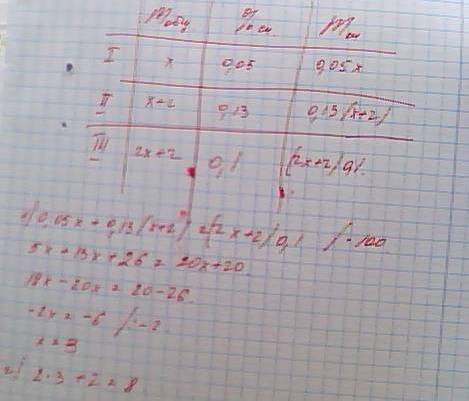 m общ % m
I x 0,05 0,05x
II x+2 0,13 0,13(x+2)
III 2x+2 0,1 (2x+2)0,1
1) 0,05x + 0,13(x+2) = (2x+2)0,1 /·100
5x + 13x + 26 = 20x+20
18x - 20x = 20 - 26
-2x = -6 /:-2
x = 3
2) 2·3 + 2 = 8